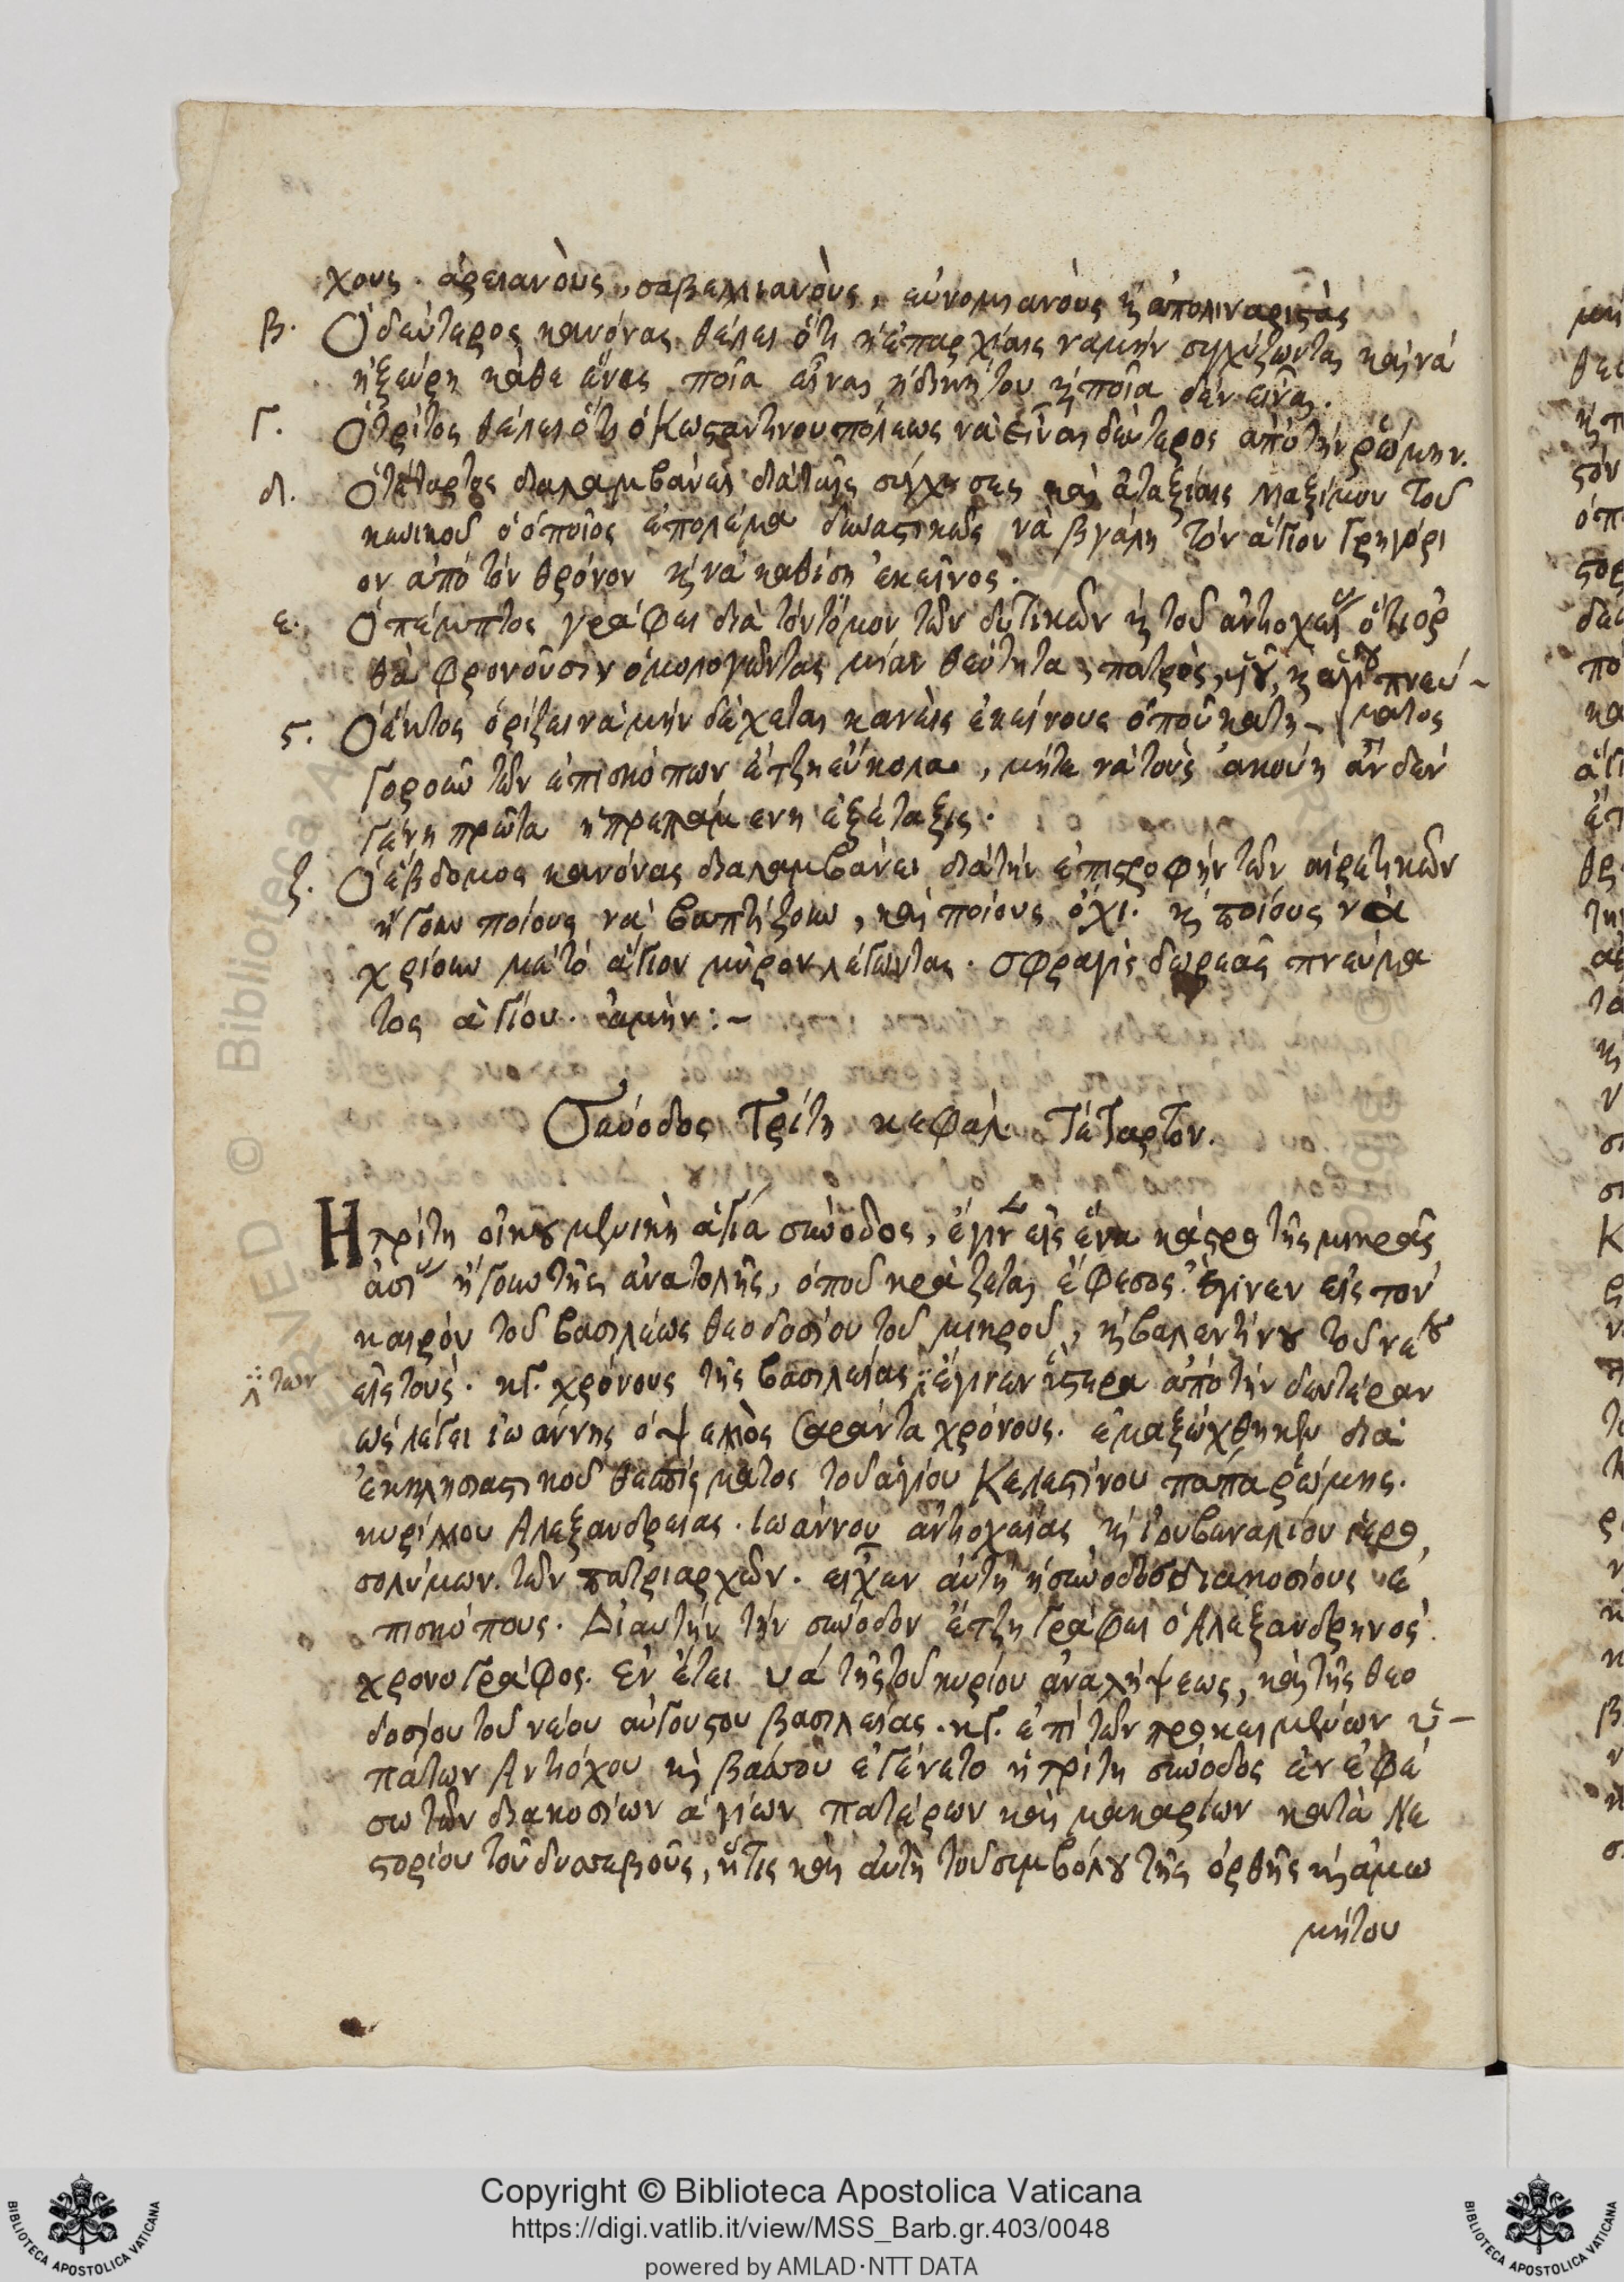 χους. ἀρειανοὺς, σαβελλιανοὺς, εὐνομιανοὺς κ ἀπολιναριστὰς
β. Ὁ δεύτερος κανόνας θέλει ὅτι ἡ ἐπαρχίαις ναμὴν συγχύζωνται καὶ νά
ἠξεύρη κάθε ἕνας ποῖα εἶναι ἡ δική του κ ποῖα δὲν εἶναι.
Γ. Ὁ τρίτος θέλει ὅτι ὁ Κωσταντινουπόλεως νὰ εἶναι δεύτερος ἀπὸ τὴν ῥώμην.
δ. Ὁ τέταρτος διαλαμβάνει διὰ ταῖς σύγχυσες καὶ ἀταξίαις Μαξίμου τοῦ
κυνικοῦ ὁ ὁποῖος ἐπολέμα δυναστικῶς νὰ βγάλη τὸν ἅγιον Γρηγόρι
ον ἀπὸ τὸν θρόνον κ νὰ καθίση ἐκεῖνος.
ε. Ὁ πέμπτος γράφει διὰ τὸν τόμον τῶν δυτικῶν κ τοῦ ἀντιοχείας ὅτι ὀρ
θὰ φρονοῦσιν ὁμολογῶντας μίαν θεότητα, πατρὸς, υἱοῦ, κ ἁγίου πνεύ-
ματος
ς. Ὁ ἕκτος ὁρίζει νὰ μὴν δέχεται κανεὶς ἐκείνους ὁποῦ κατη-
γοροῦν τῶν ἐπισκόπων ἔτζη εὔκολα, μήτε νὰ τοὺς ἀκούη ἂν δὲν
γένη πρῶτα ἡ πρεπάμενη ἐξέταξις.
ζ. Ὁ ἕβδομος κανόνας διαλαμβάνει διὰ τὴν ἐπιστροφὴν τῶν αἱρετικῶν
ἤγουν ποίους νὰ βαπτίζουν, καὶ ποίους ὄχι. κ ποίους νὰ
χρίουν μὲ τὸ ἅγιον μῦρον λέγωντας. σφραγὶς δωρεᾶς πνεύμα
τος ἁγίου. ἀμὴν:-
Σύνοδος Τρίτη κεφάλ. Τέταρτον.
Η τρίτη οἰκουμενικὴ ἁγία σύνοδος, ἐγίνει εἰς ἕνα κάστρο τῆς μικρᾶς
ἀσίας ἤγουν τῆς ἀνατολῆς, ὁποῦ κράζεται ἔφεσος. ἔγινεν εἰς τὸν
καιρὸν τοῦ βασιλέως θεοδοσίου τοῦ μικροῦ, κ βαλεντίνου τοῦ νέου
εἰς τοὺς. κγ. χρόνους τῆς βασιλείας των ἔγινεν ὕστερα ἀπὸ τὴν δευτέραν
ὡς λέγει ἰωάννης ὁ ψελλὸς σαράντα χρόνους. ἐμαζώχθηκεν διὰ
ἐκκλησιαστικοῦ θεσπίσματος τοῦ ἁγίου Κελεστίνου πάπα ῥώμης.
κυρίλλου Ἀλεξανδρείας. ἰωάννου ἀντιοχείας κ ἰουβεναλίου ἱερο
σολύμων. τῶν πατριαρχῶν. εἶχεν αὐτὴ ἡ σύνοδος διακοσίους ἐ
πισκόπους. Διαυτὴν τὴν σύνοδον ἔτζη γράφει ὁ Ἀλεξανδρηνὸς
χρονογράφος. Ἐν ἔτει υά τῆς τοῦ κυρίου ἀναλήψεως, καὶ τῆς θεο
δοσίου τοῦ νέου αὐγούστου βασιλείας. κγ. ἐπὶ τῶν προκειμένων ὑ-
πάτων Ἀντιόχου κ βάσσου ἐγένετο ἡ τρίτη σύνοδος ἐν ἐφέ
σω τῶν διακοσίων ἁγίων πατέρων καὶ μακαρίων κατὰ Νε
στορίου τοῦ δυσσεβοῦς, ἥτις καὶ αὐτὴ τοῦ συμβόλου τῆς ὀρθῆς κ ἀμω
μήτου
Copyright © Biblioteca Apostolica Vaticana
https://digi.vatlib.it/view/MSS_Barb.gr.403/0048
powered by AMLAD·NTT DATA